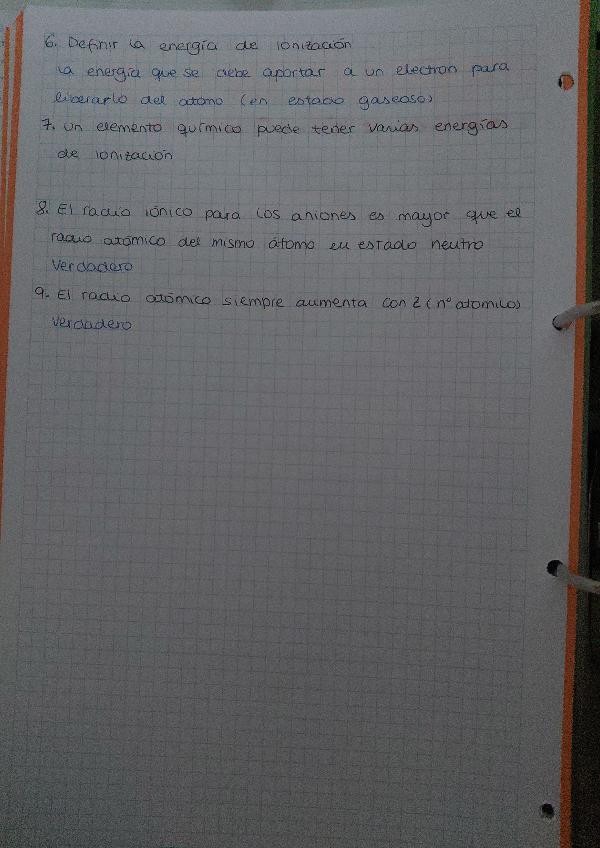 6. Definir la energía de ionización
la energía que se debe aportar a un electron para
liberarlo del atomo (en estado gaseoso)
7. un elemento químico puede tener varias energías
de ionización
8. El radio iónico para los aniones es mayor que el
radio atómico del mismo átomo en estado neutro
Verdadero
9. El radio atómico siempre aumenta con Z (nº atomico)
Verdadero